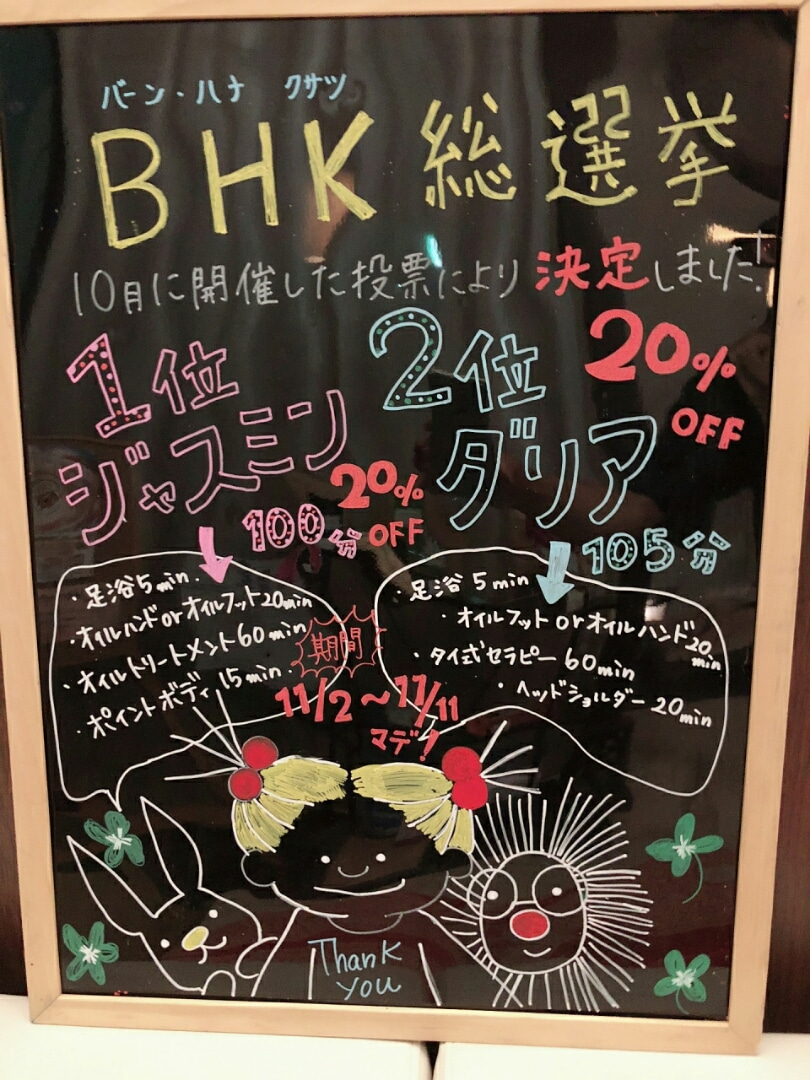 バーン・ハナ クサツ
BHK 総選挙
10月に開催した投票により 決定しました!
1位
ジャスミン
20%
OFF
100分
・足浴5min.
・オイルハンドorオイルフット20min
・オイルトリートメント60min
・ポイントボディ15min.
2位
20%
OFF
ダリア
105分
・足浴 5min
・オイルフットorオイルハンド20min
・タイ式セラピー 60min
・ヘッドショルダー 20min
期間
11/2~11/11
マデ!
Thank
you